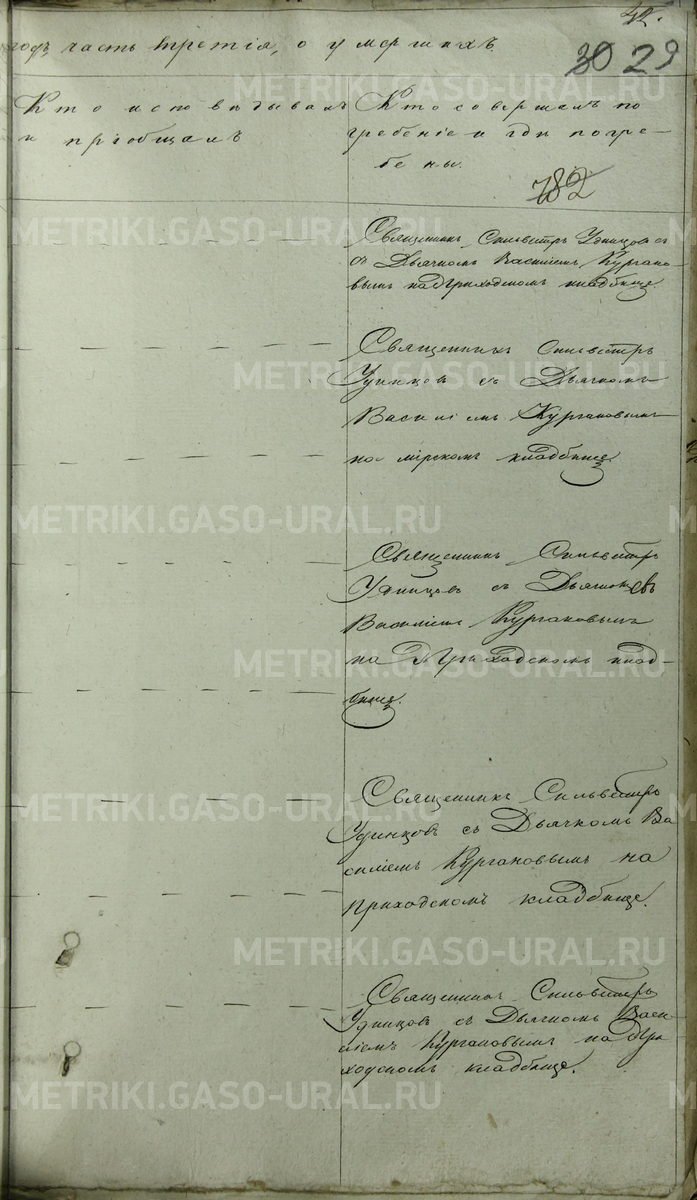 42.
годъ, часть третія, о умершихъ.
30 29
Кто исповѣдывалъ
и пріобщалъ
Кто совершалъ по
гребеніе и гдѣ погре-
бены.
782
Священникъ Сильвестръ Удинцовъ съ
Дьячкомъ Василіемъ Кургано-
вымъ на Приходскомъ кладбище.
Священникъ Сильвестръ
Удинцовъ съ Дьячкомъ
Василіемъ Кургановымъ
на мірскомъ кладбище.
Священникъ Сильвестръ
Удинцовъ съ Дьячкомъ
Василіемъ Кургановымъ
на Приходскомъ клад-
бище.
Священникъ Сильвестръ
Удинцовъ съ Дьячкомъ Ва
силіемъ Кургановымъ на
приходскомъ кладбище.
Священникъ Сильвестръ
Удинцовъ съ Дьячкомъ Васи-
ліемъ Кургановымъ на При
ходскомъ кладбище.
METRIKI.GASO-URAL.RU